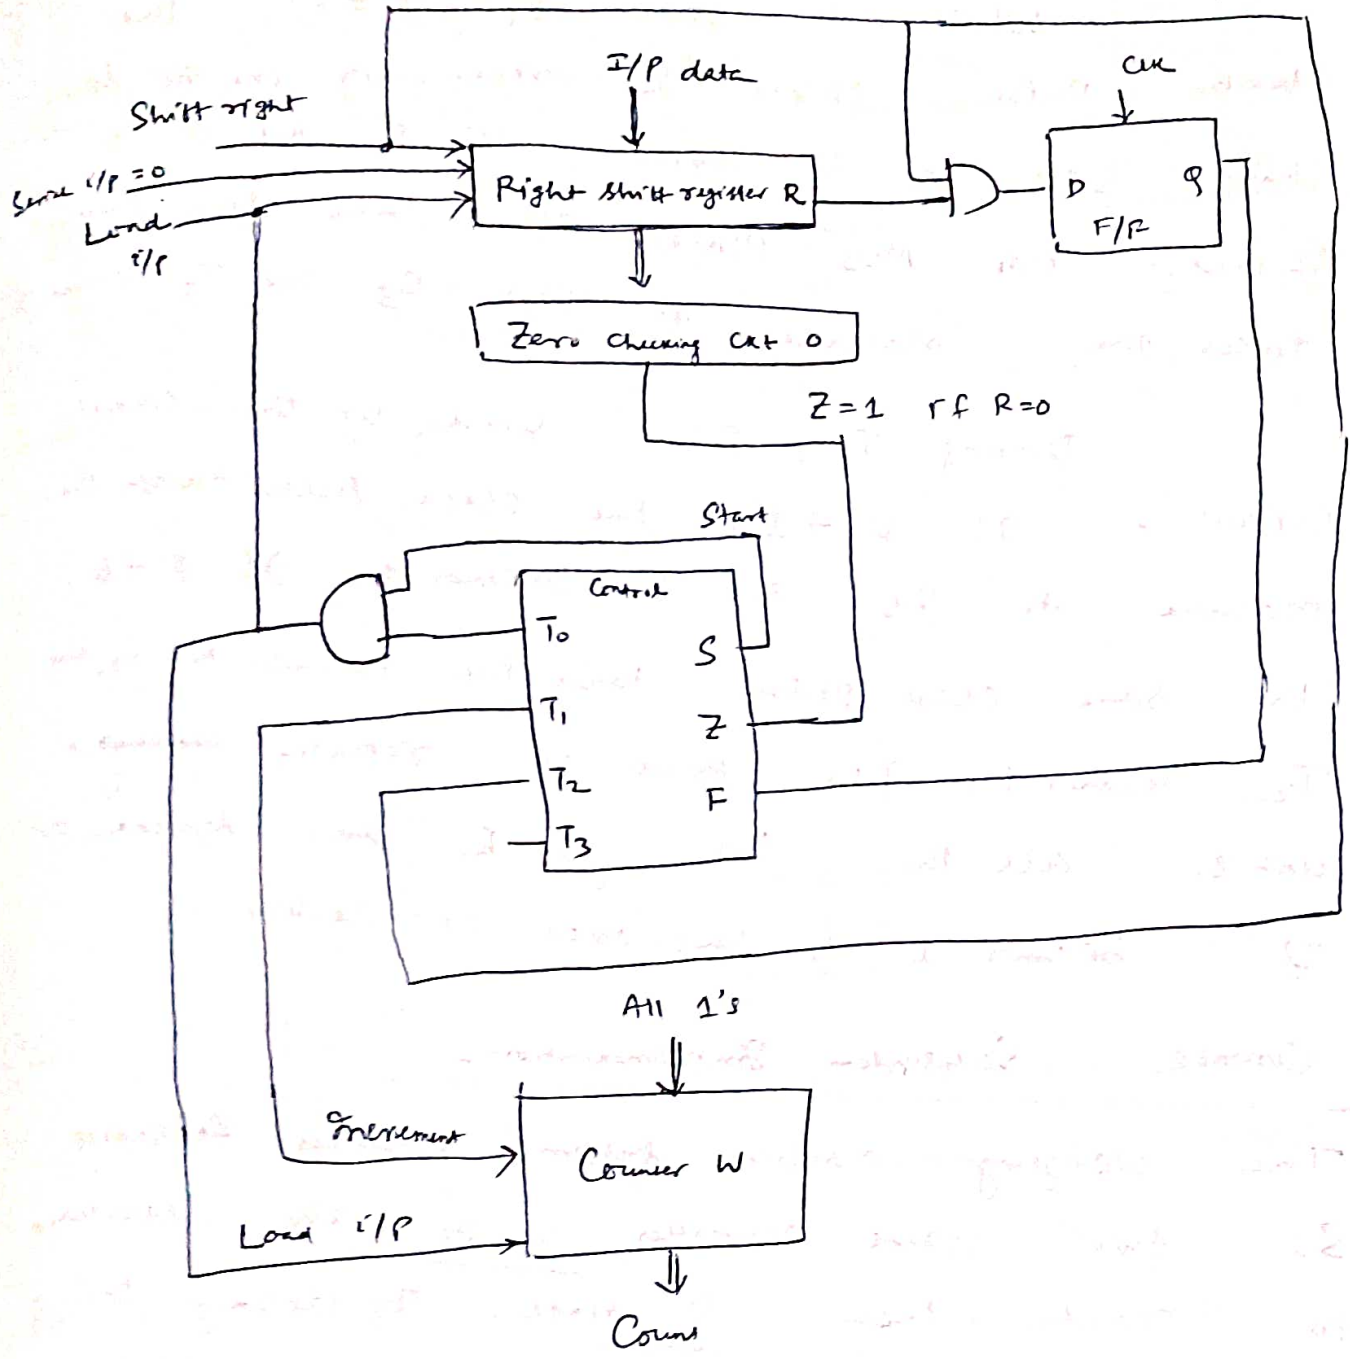 I/P data
CLK
Shift right
Serial i/p = 0
Load
i/p
Right shift register R
D Q
F/F
Zero Checking Ckt 0
Z = 1 if R=0
Start
Control
T0
S
T1
Z
T2
F
T3
All 1's
Increment
Counter W
Load i/P
Count